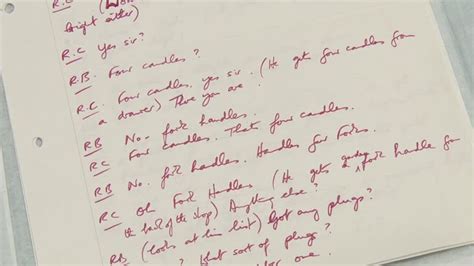 R.C Yes sir?
R.B. Four candles?
R.C. Four candles, yes sir. (He gets four candles from
a drawer) There you are.
RB No. fork handles.
RC Four candles. That's four candles.
RB No. fork handles. Handles for Forks.
RC Oh Fork Handles (He gets a garden fork handle from
the back of the shop) Anything else?
RB (looks at his list) Got any plugs?
What sort of plugs?
for one.